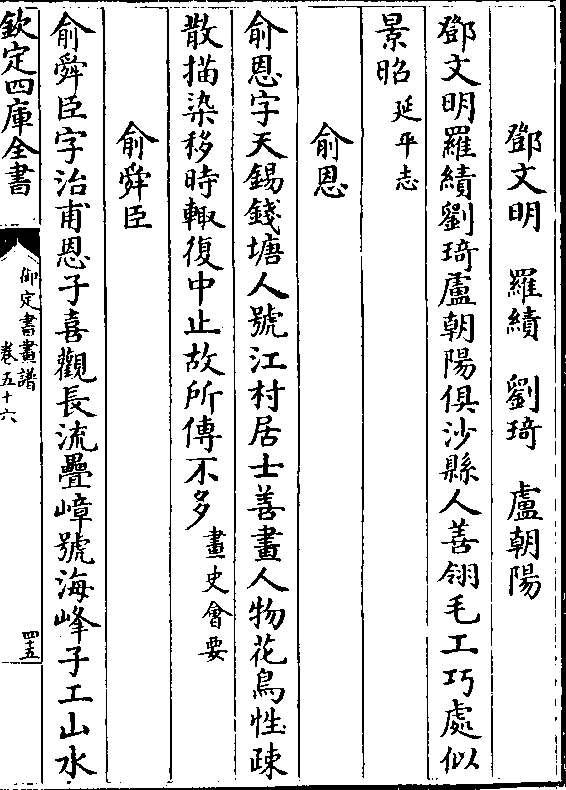 鄧文明　羅績　劉琦　盧朝陽
鄧文明羅績劉琦盧朝陽俱沙縣人善翎毛工巧處似
景昭延平志
俞恩
俞恩字天錫錢塘人號江村居士善畫人物花鳥性疎
散描染移時輙復中止故所傳不多畫史會要
俞舜臣
俞舜臣字治甫恩子喜觀長流疊嶂號海峰子工山水
欽定四庫全書
御定書畫譜
卷五十六
四五